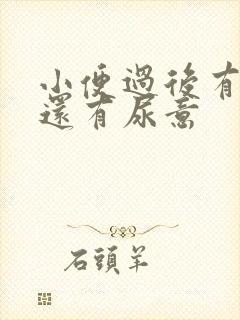 小便過後有
還有尿意
石頭羊